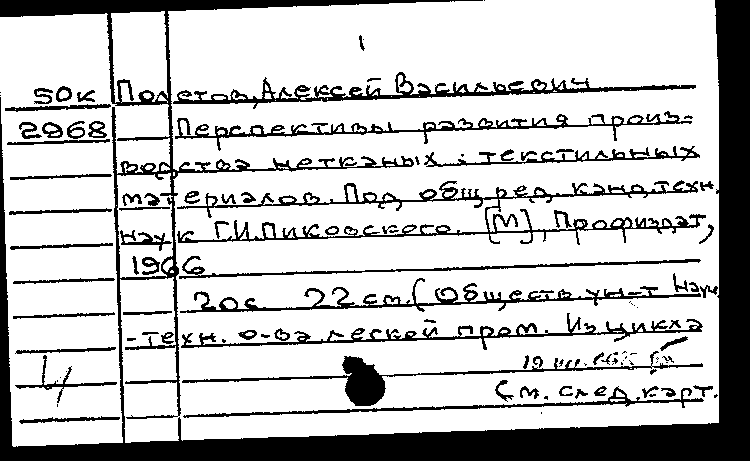 1
50к Полетов, Алексей Васильевич
2968 Перспективы развития произ-
водства нетканых текстильных
материалов. Под общ. ред. канд. техн.
наук Г.И. Пиковского. [М], Профиздат,
1966.
20с 22 см. (Обществ. ун-т Науч.
-техн. о-ва легкой пром. Из цикла
См. след. карт.